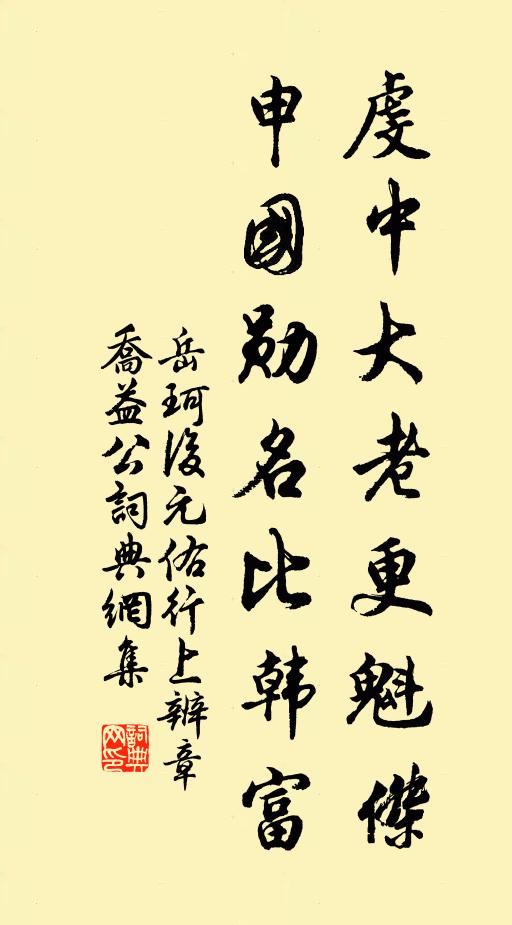 虔中大老更魁傑
申國勛名比韩富
岳珂後元佑行上辨章
喬益公詞典網集
詞典網印